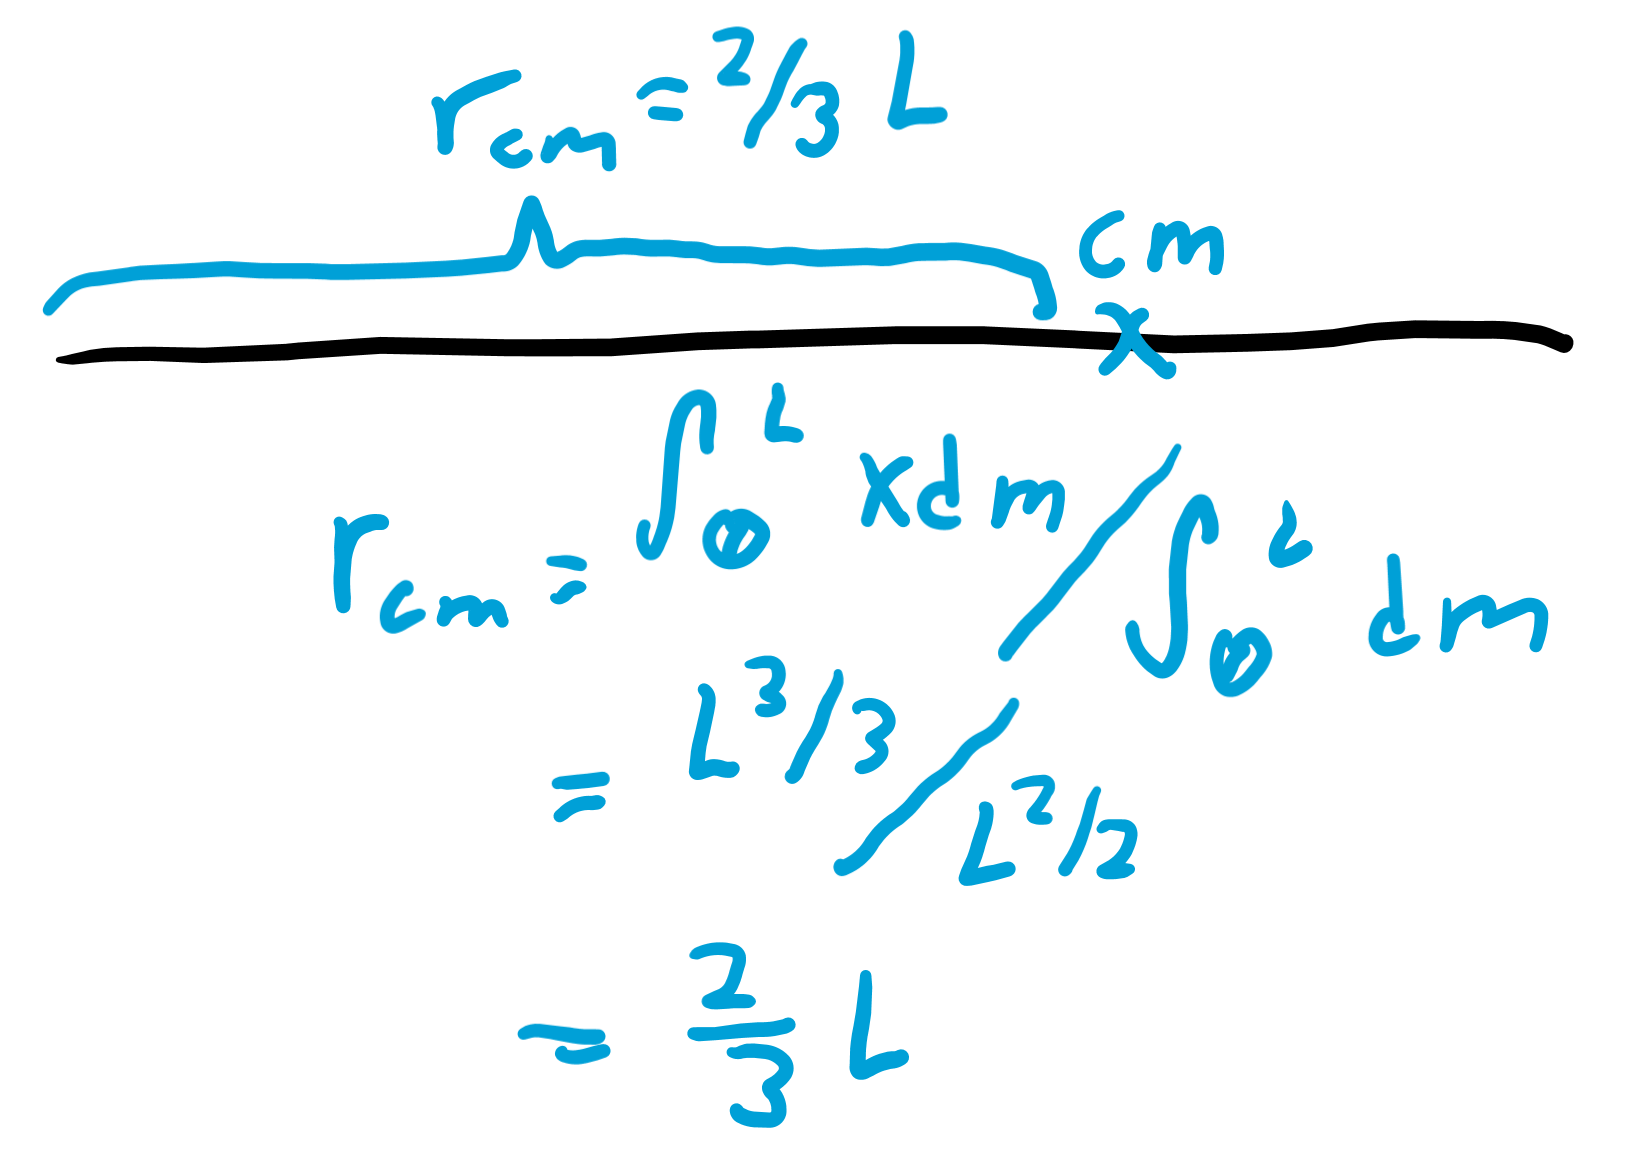 r_cm = 2/3 L
cm
x
r_cm = ∫_0^L x dm / ∫_0^L dm
= L^3/3 / L^2/2
= 2/3 L